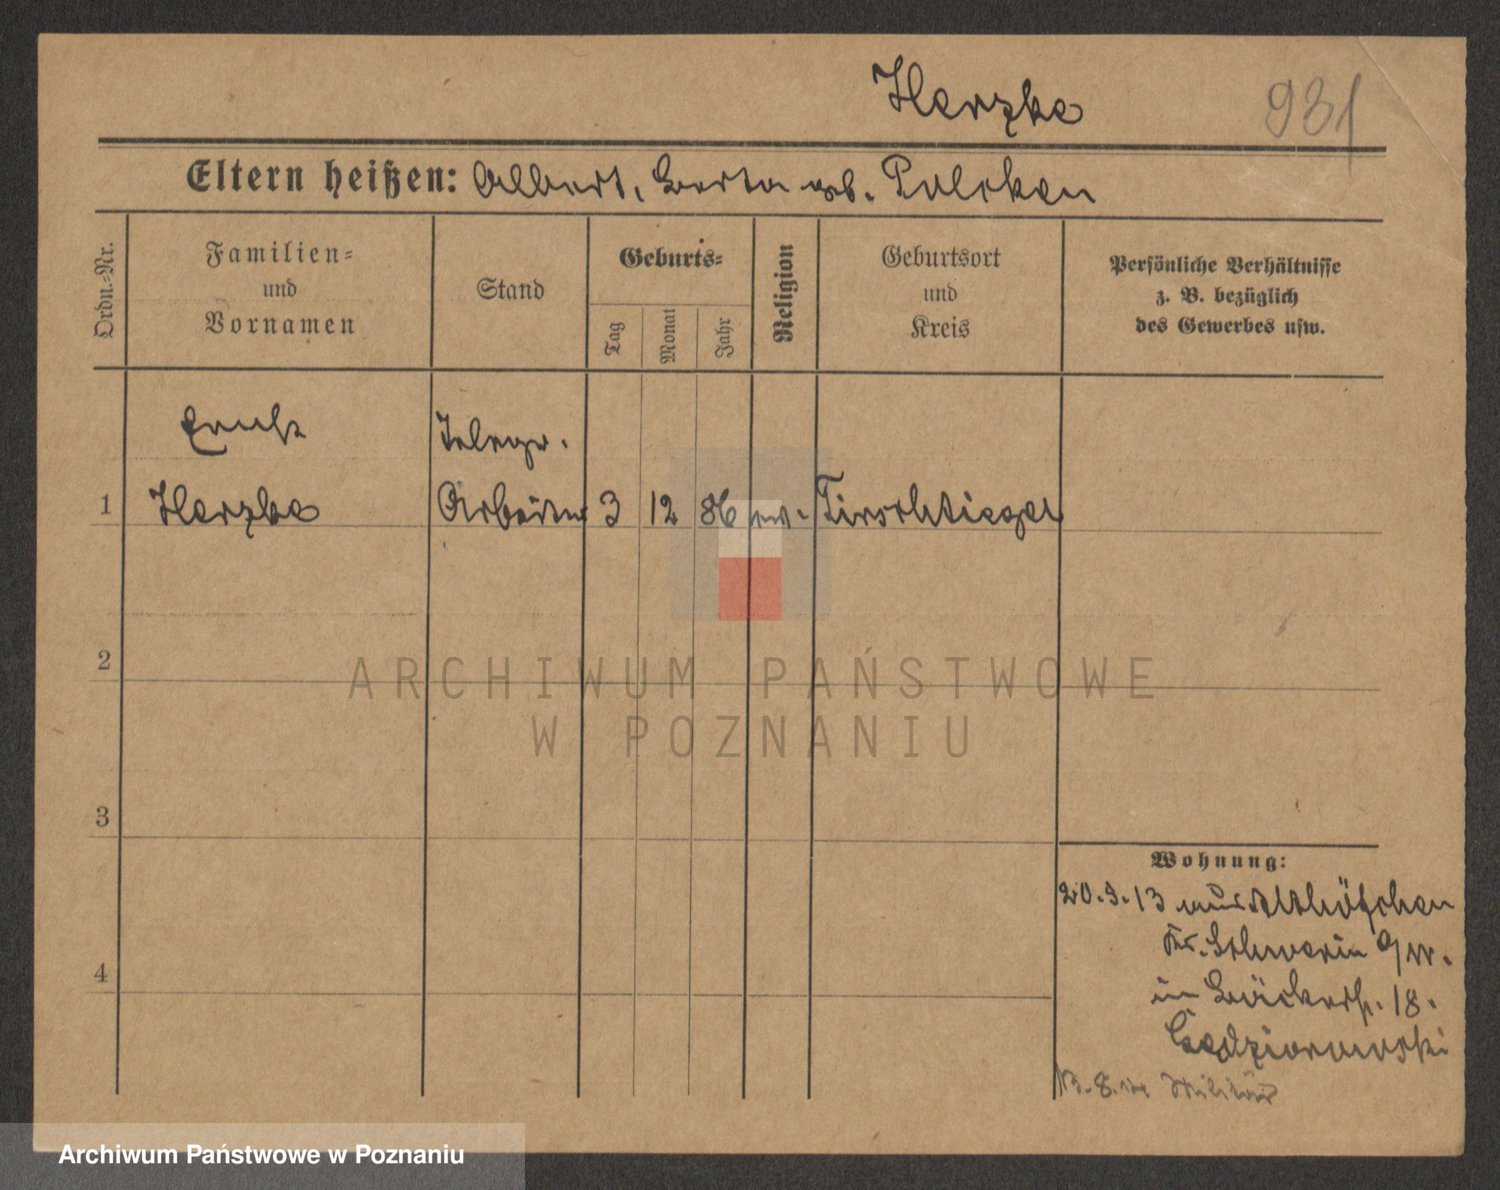 Herzke
931
Eltern heißen: Albert, Berta geb.
Ordn.=Nr.
Familien=
und
Vornamen
Stand
Geburts=
Tag
Monat
Jahr
Religion
Geburtsort
und
Kreis
Persönliche Verhältnisse
z. B. bezüglich
des Gewerbes usw.
Ernst
Telegr.
1
Herzke
Arbeiter
3
12
86
ev.
Tirschtiegel
2
ARCHIWUM PAŃSTWOWE
W POZNANIU
3
Wohnung:
20.3.13 aus Althöfchen
Kr. Schwerin a/W.
4
in Bäckerstr. 18.
Militär
Archiwum Państwowe w Poznaniu